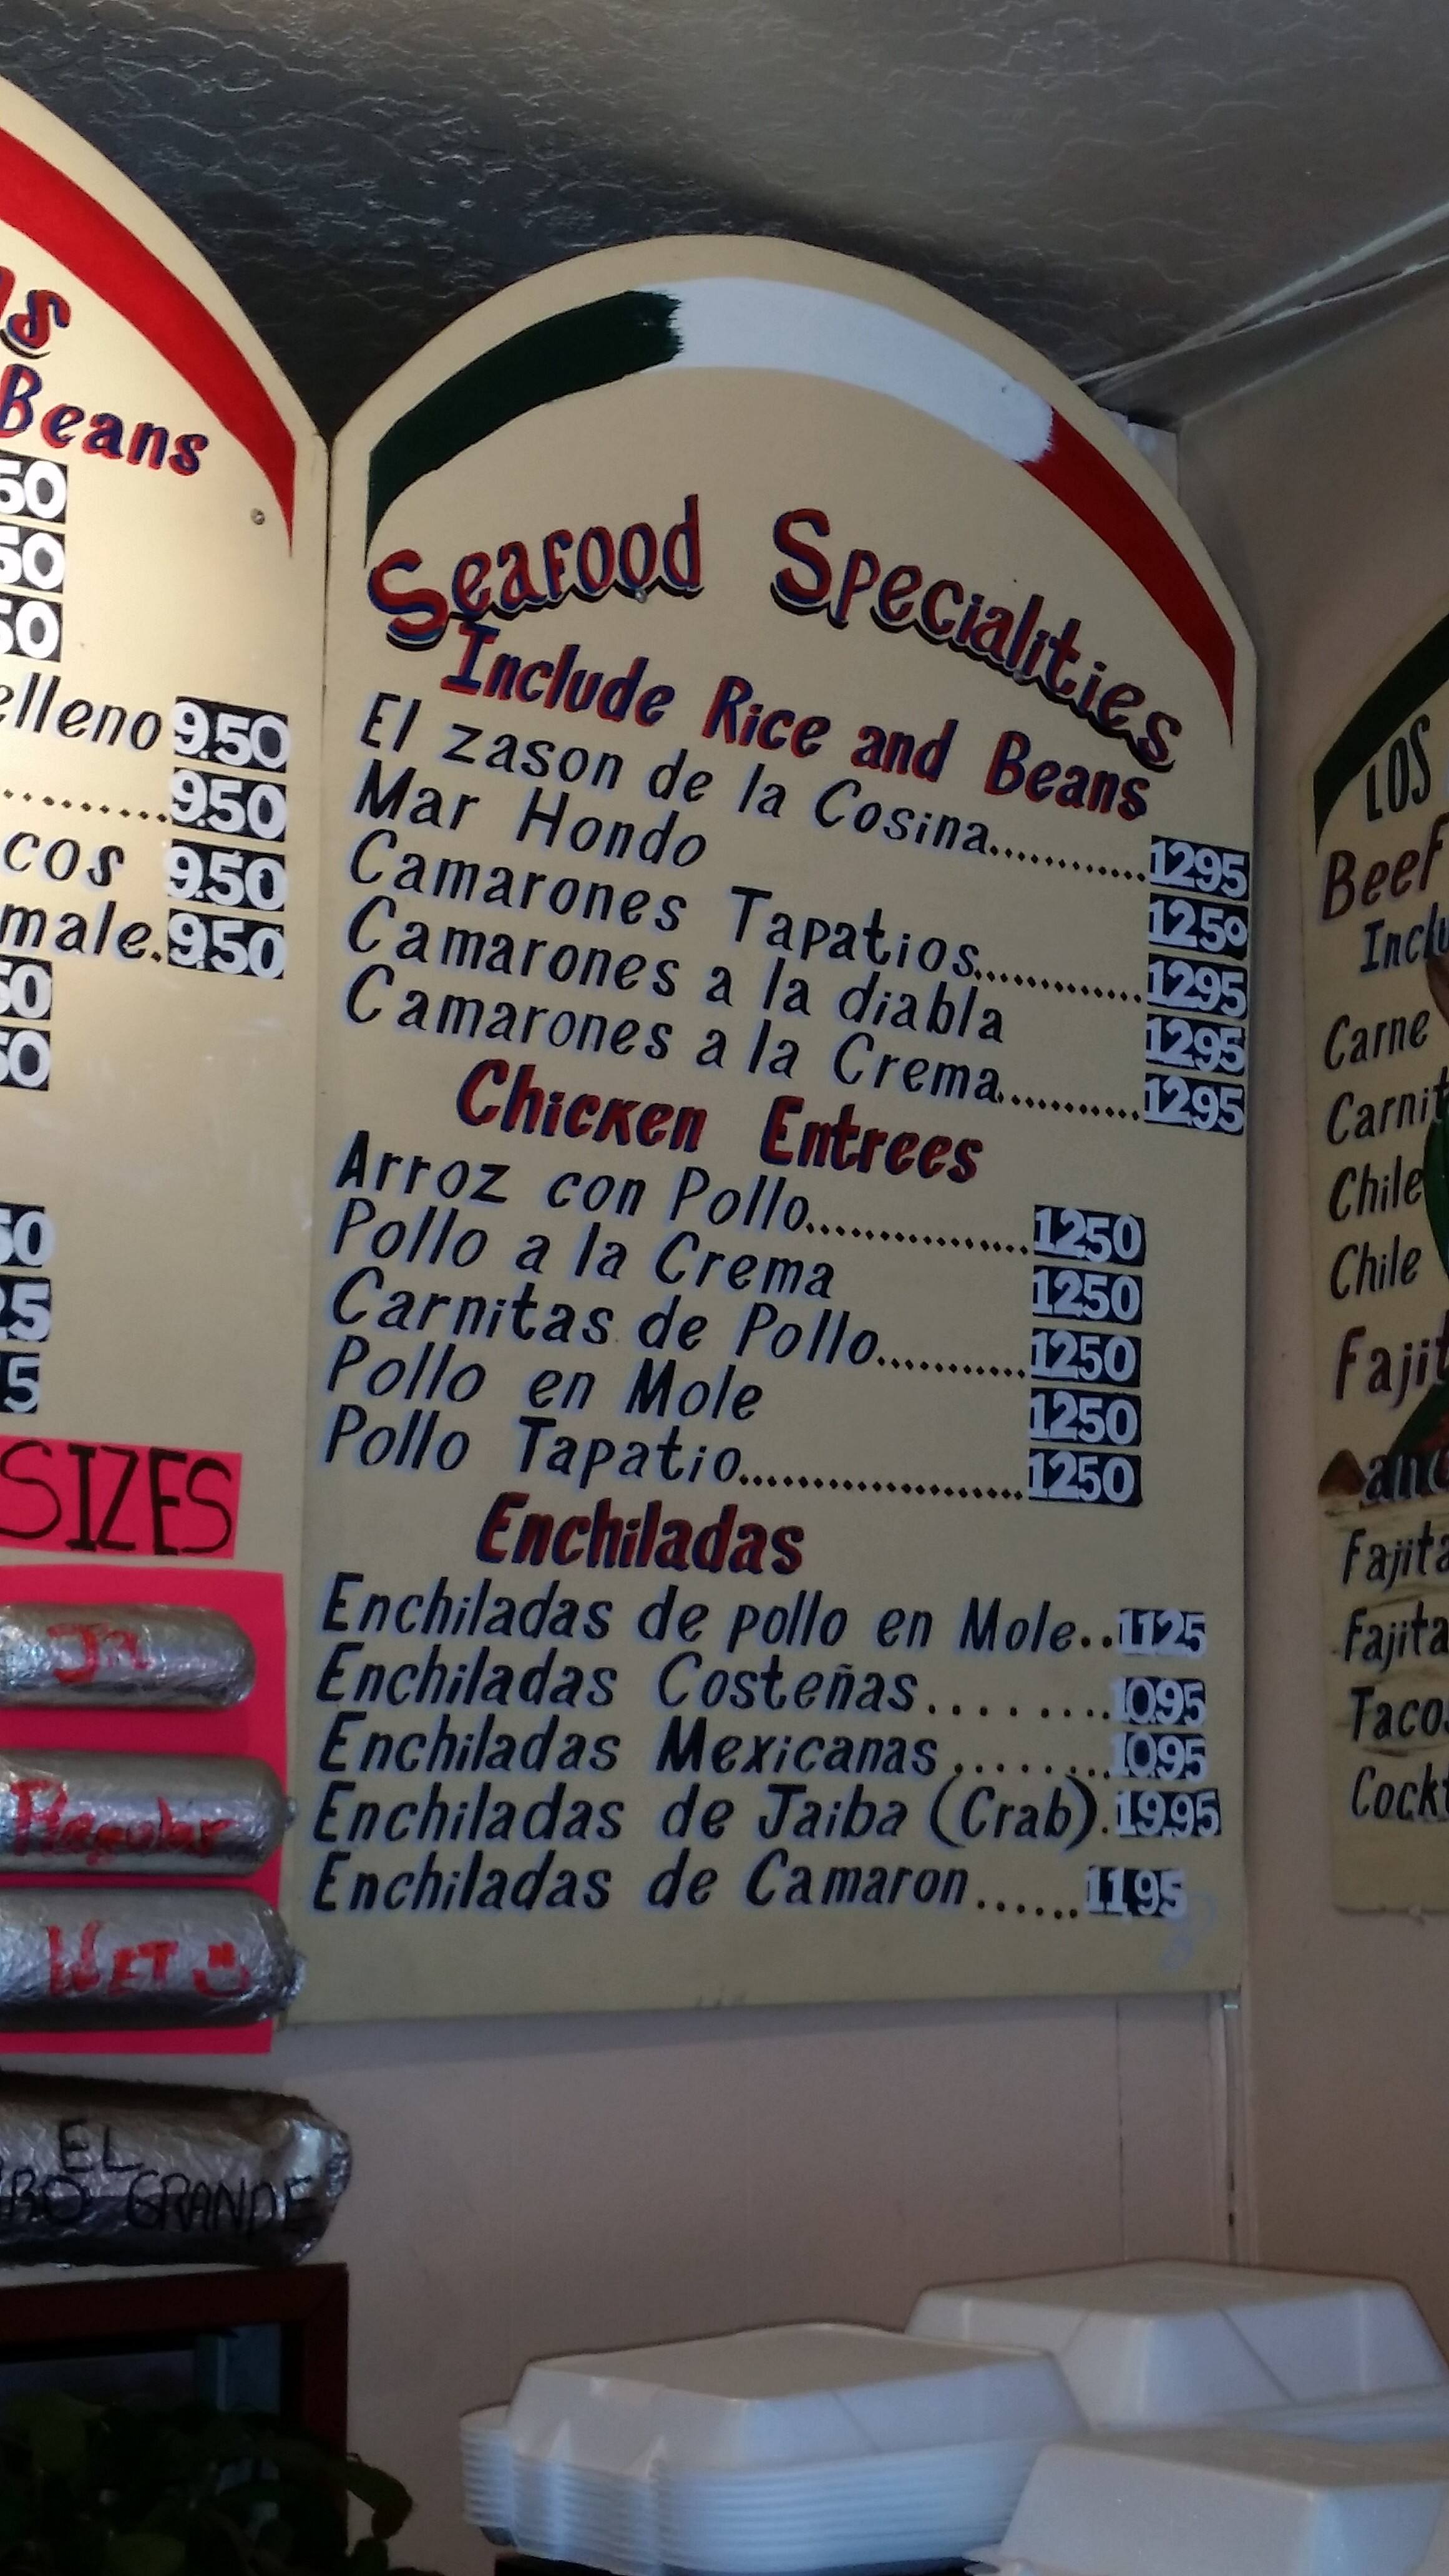 s
Beans
50
50
50
elleno 9.50
.........9.50
cos 9.50
male.9.50
50
50
50
25
5
SIZES
Jr
Regular
WET
EL
GRANDE
Seafood Specialities
Include Rice and Beans
El zason de la Cosina...........1295
Mar Hondo 1250
Camarones Tapatios..............1295
Camarones a la diabla 1295
Camarones a la Crema...........1295
Chicken Entrees
Arroz con Pollo.................1250
Pollo a la Crema 1250
Carnitas de Pollo...........1250
Pollo en Mole 1250
Pollo Tapatio.....................1250
Enchiladas
Enchiladas de pollo en Mole..1125
Enchiladas Costeñas........1095
Enchiladas Mexicanas.......1095
Enchiladas de Jaiba (Crab).1995
Enchiladas de Camaron......1195
LOS
Beef
Inclu
Carne
Carnit
Chile
Chile
Fajit
and
Fajita
Fajita
Tacos
Cockt